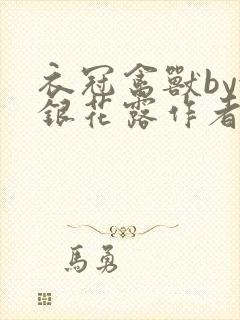 衣冠禽獸by
銀花露作者
馬勇